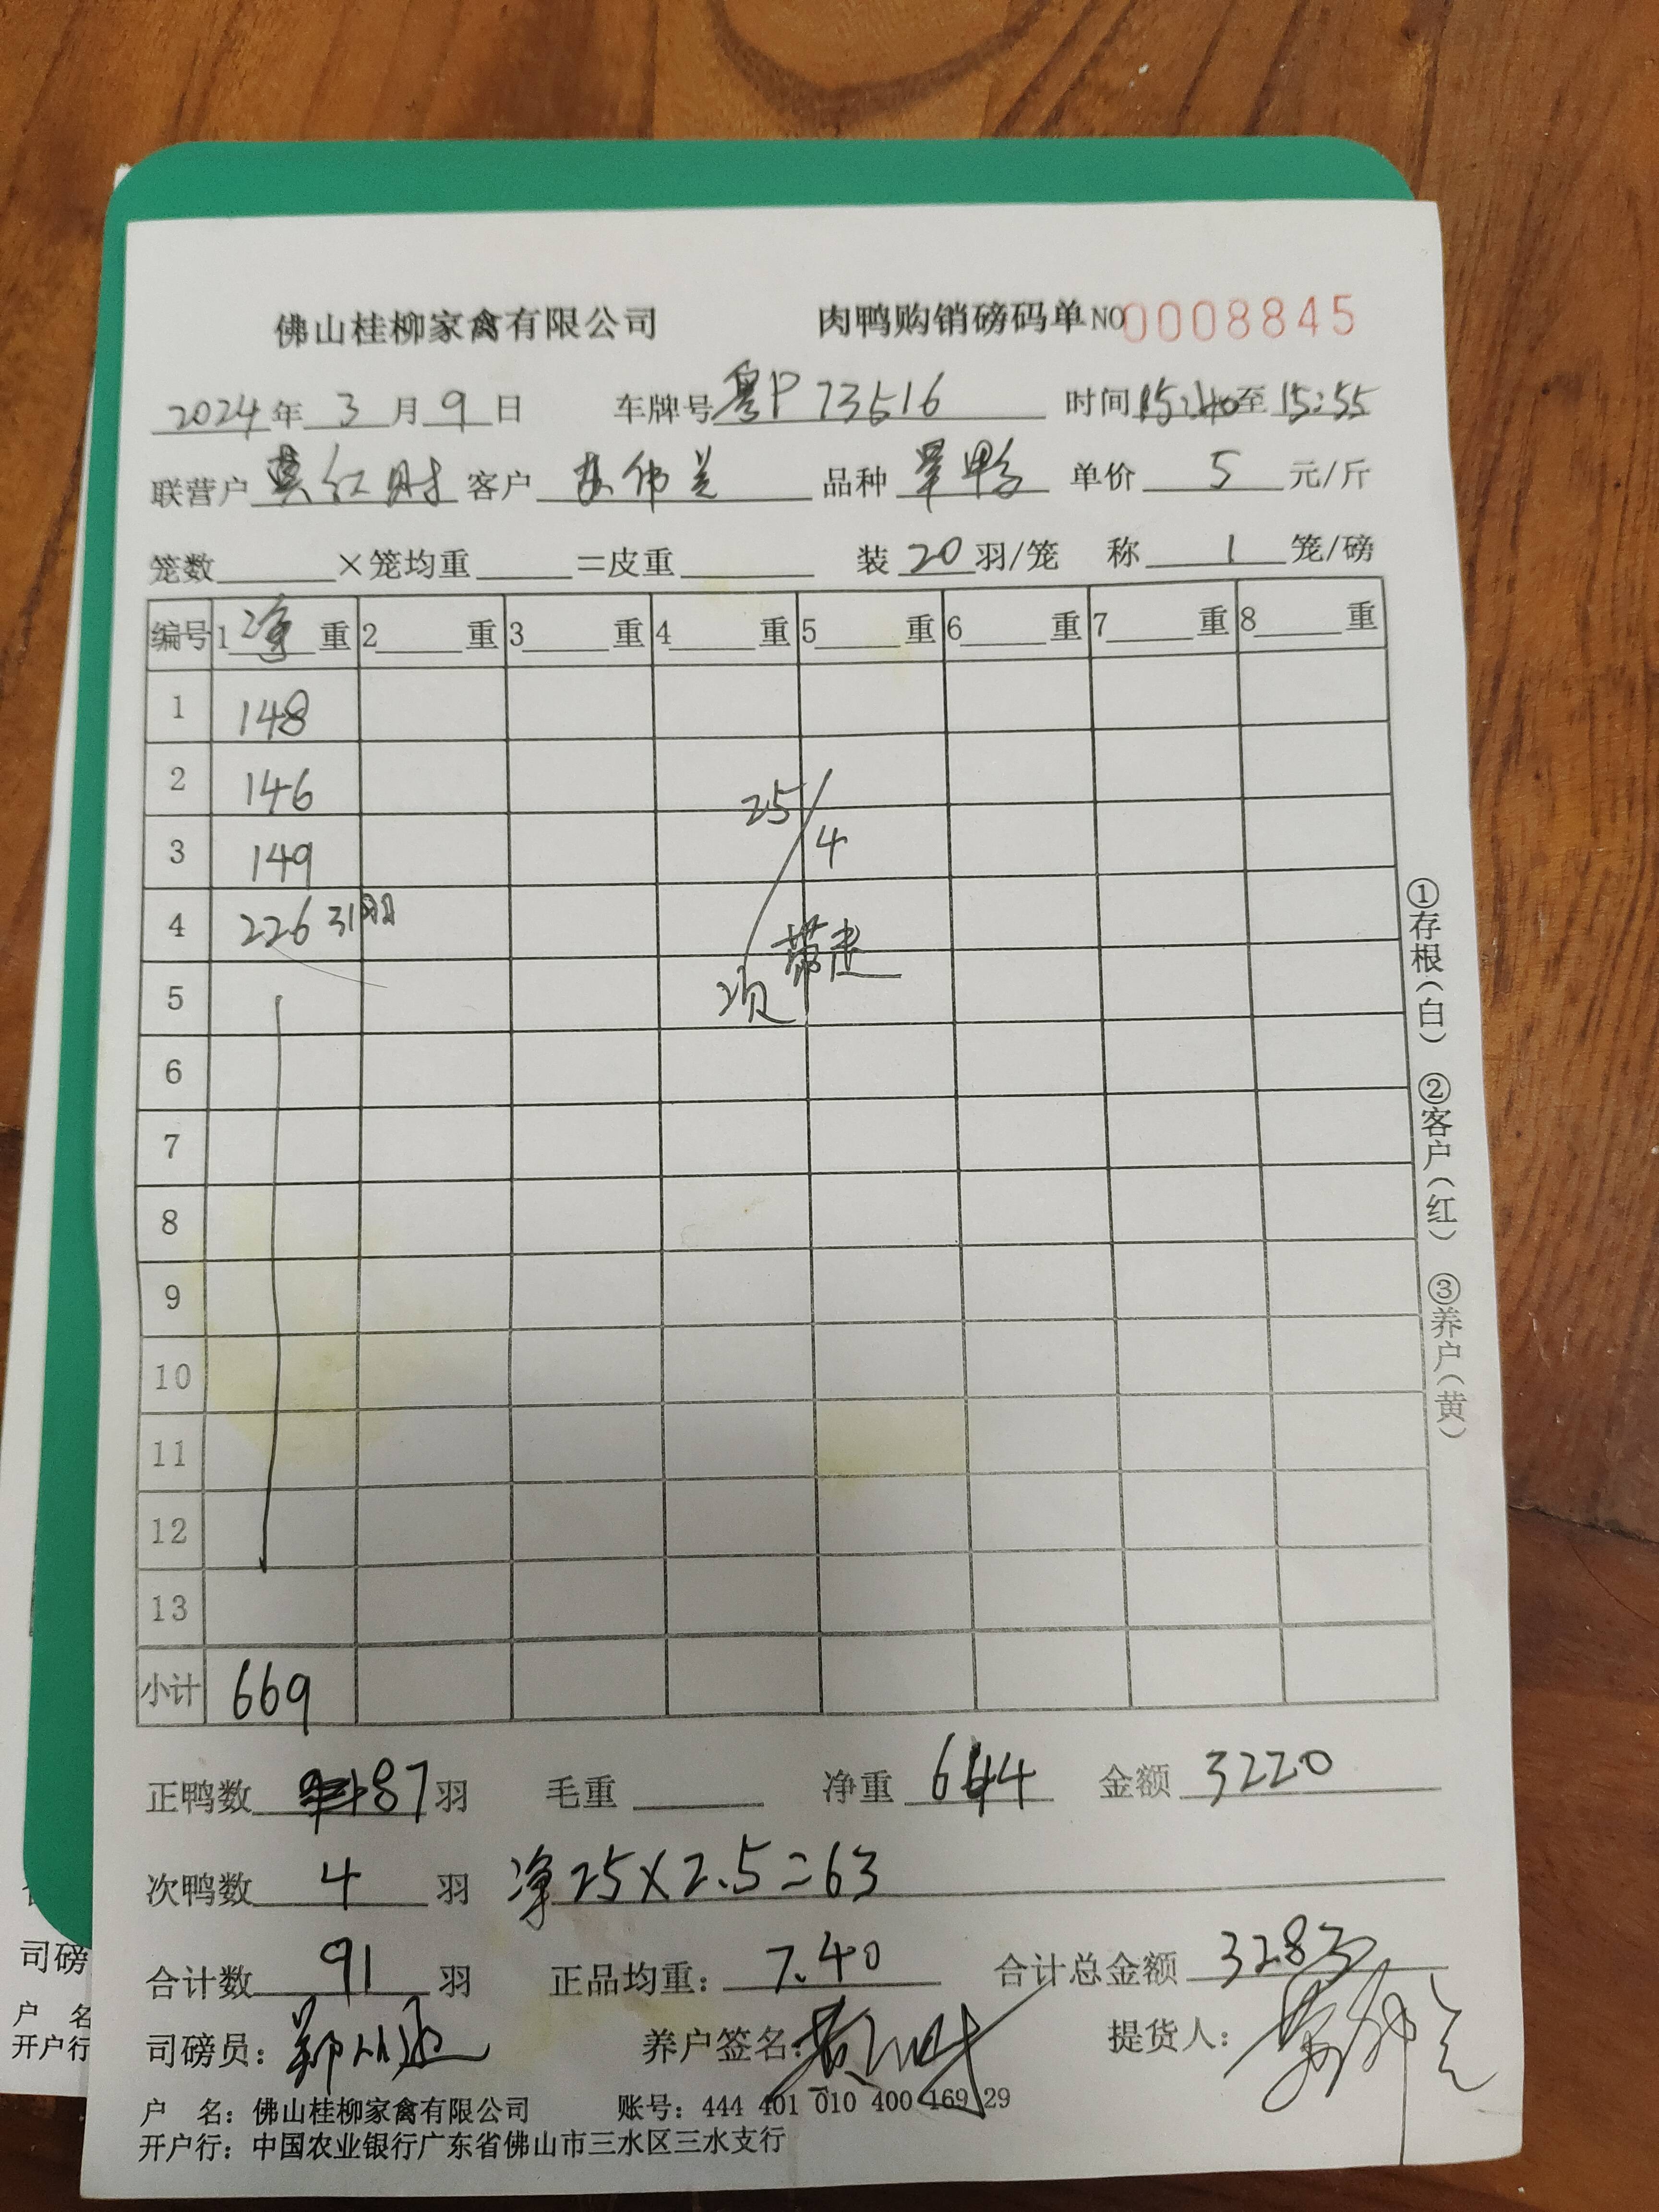 佛山桂柳家禽有限公司 肉鸭购销磅码单 NO 0008845
2024 年 3 月 9 日 车牌号 粤P73516 时间 15:40 至 15:55
联营户 莫红财 客户 伟兰 品种 草鸭 单价 5 元/斤
笼数 ×笼均重 =皮重 装 20 羽/笼 称 1 笼/磅
编号 1 净 重 2 重 3 重 4 重 5 重 6 重 7 重 8 重
1 148
2 146 25/
3 149 4
4 226 31羽 带走
5 次
6
7
8
9
10
11
12
13
小计 669
正鸭数 87 羽 毛重 净重 644 金额 3220
次鸭数 4 羽 净25×2.5=63
合计数 91 羽 正品均重: 7.40 合计总金额 3283
司磅员: 养户签名: 提货人:
户 名: 佛山桂柳家禽有限公司 账号: 444 401 010 400 169 29
开户行: 中国农业银行广东省佛山市三水区三水支行
①存根(白) ②客户(红) ③养户(黄)
司磅
户 名
开户行